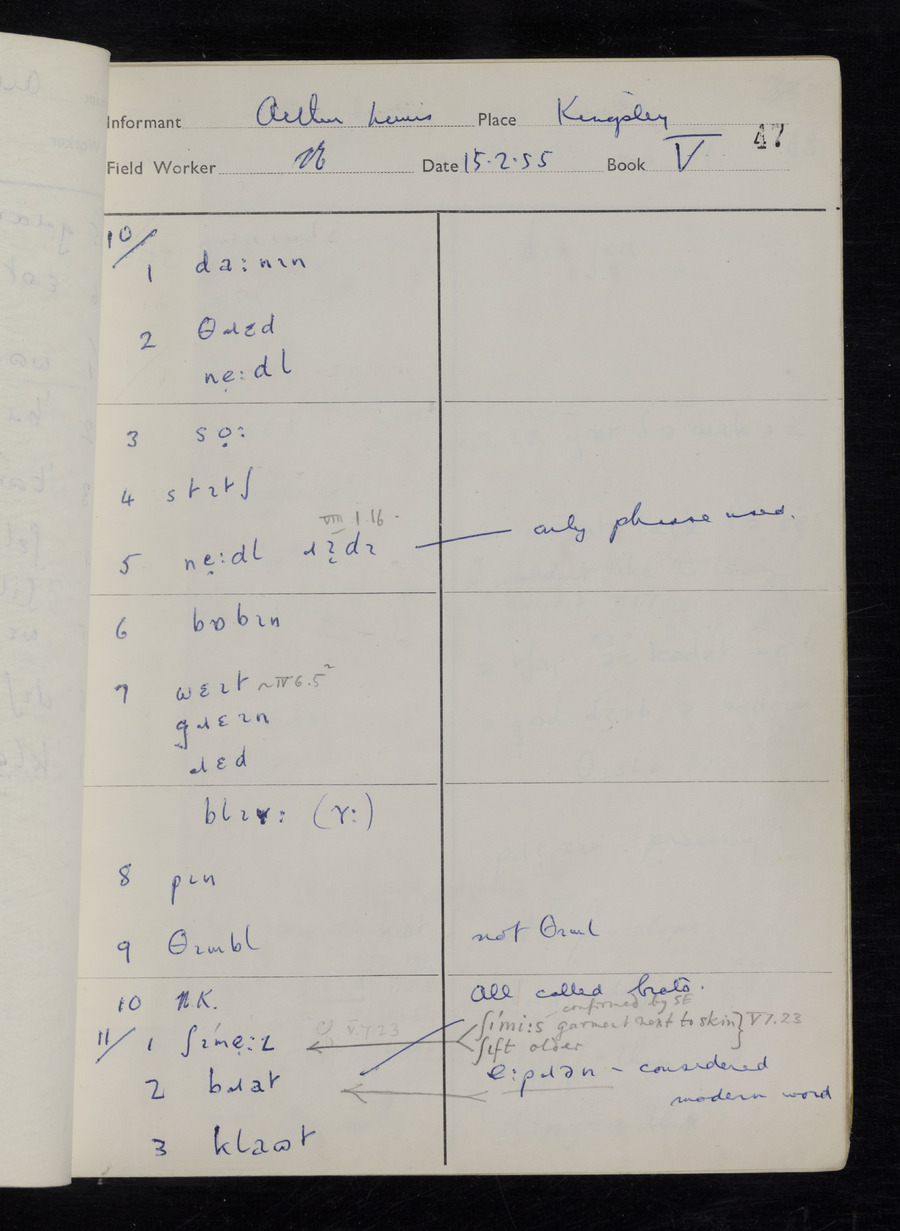 Informant Arthur Lewis Place Kingsley
47
Field Worker Date 15.2.55 Book V
10/
1 daːnɪn
2 θɹɛd
nẹːdl
3 sọː
4 stɪtʃ
VIII 1.16.
5 nẹːdl ɹɪ̣dɪ — only phrase used.
6 bɒbɪn
7 wɛɪt ~ IV 6.5²
gɹɛɪn
ɹɛd
blɪɤː (ɤː)
8 pɪn
9 θɪmbl not θɪml
10 N.K. All called brats.
confirmed by SE
11/ 1 ʃɪmẹːz V 7.23 ʃímiːs garment next to skin} V 7.23
ʃɪft older
2 bɹat eːpɹən – considered
modern word
3 klaωt